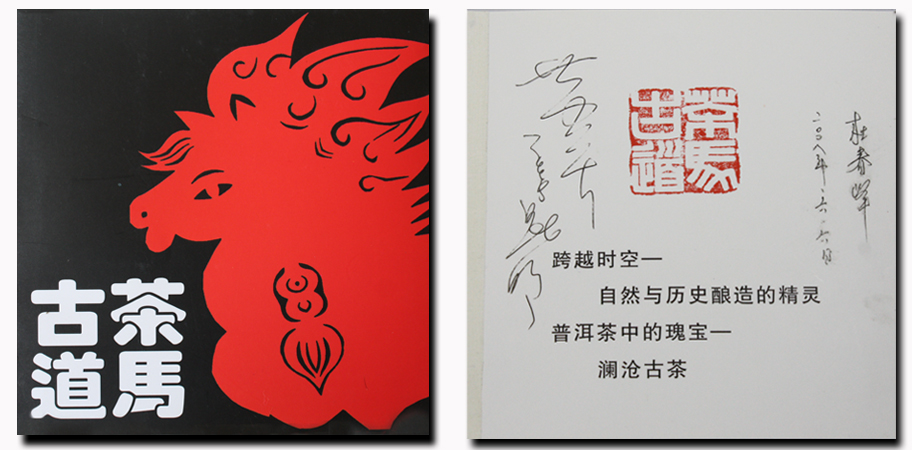 茶馬
古道
茶馬
古道
杜春峄
二〇〇八年.六.六日
跨越时空—
自然与历史酿造的精灵
普洱茶中的瑰宝—
澜沧古茶